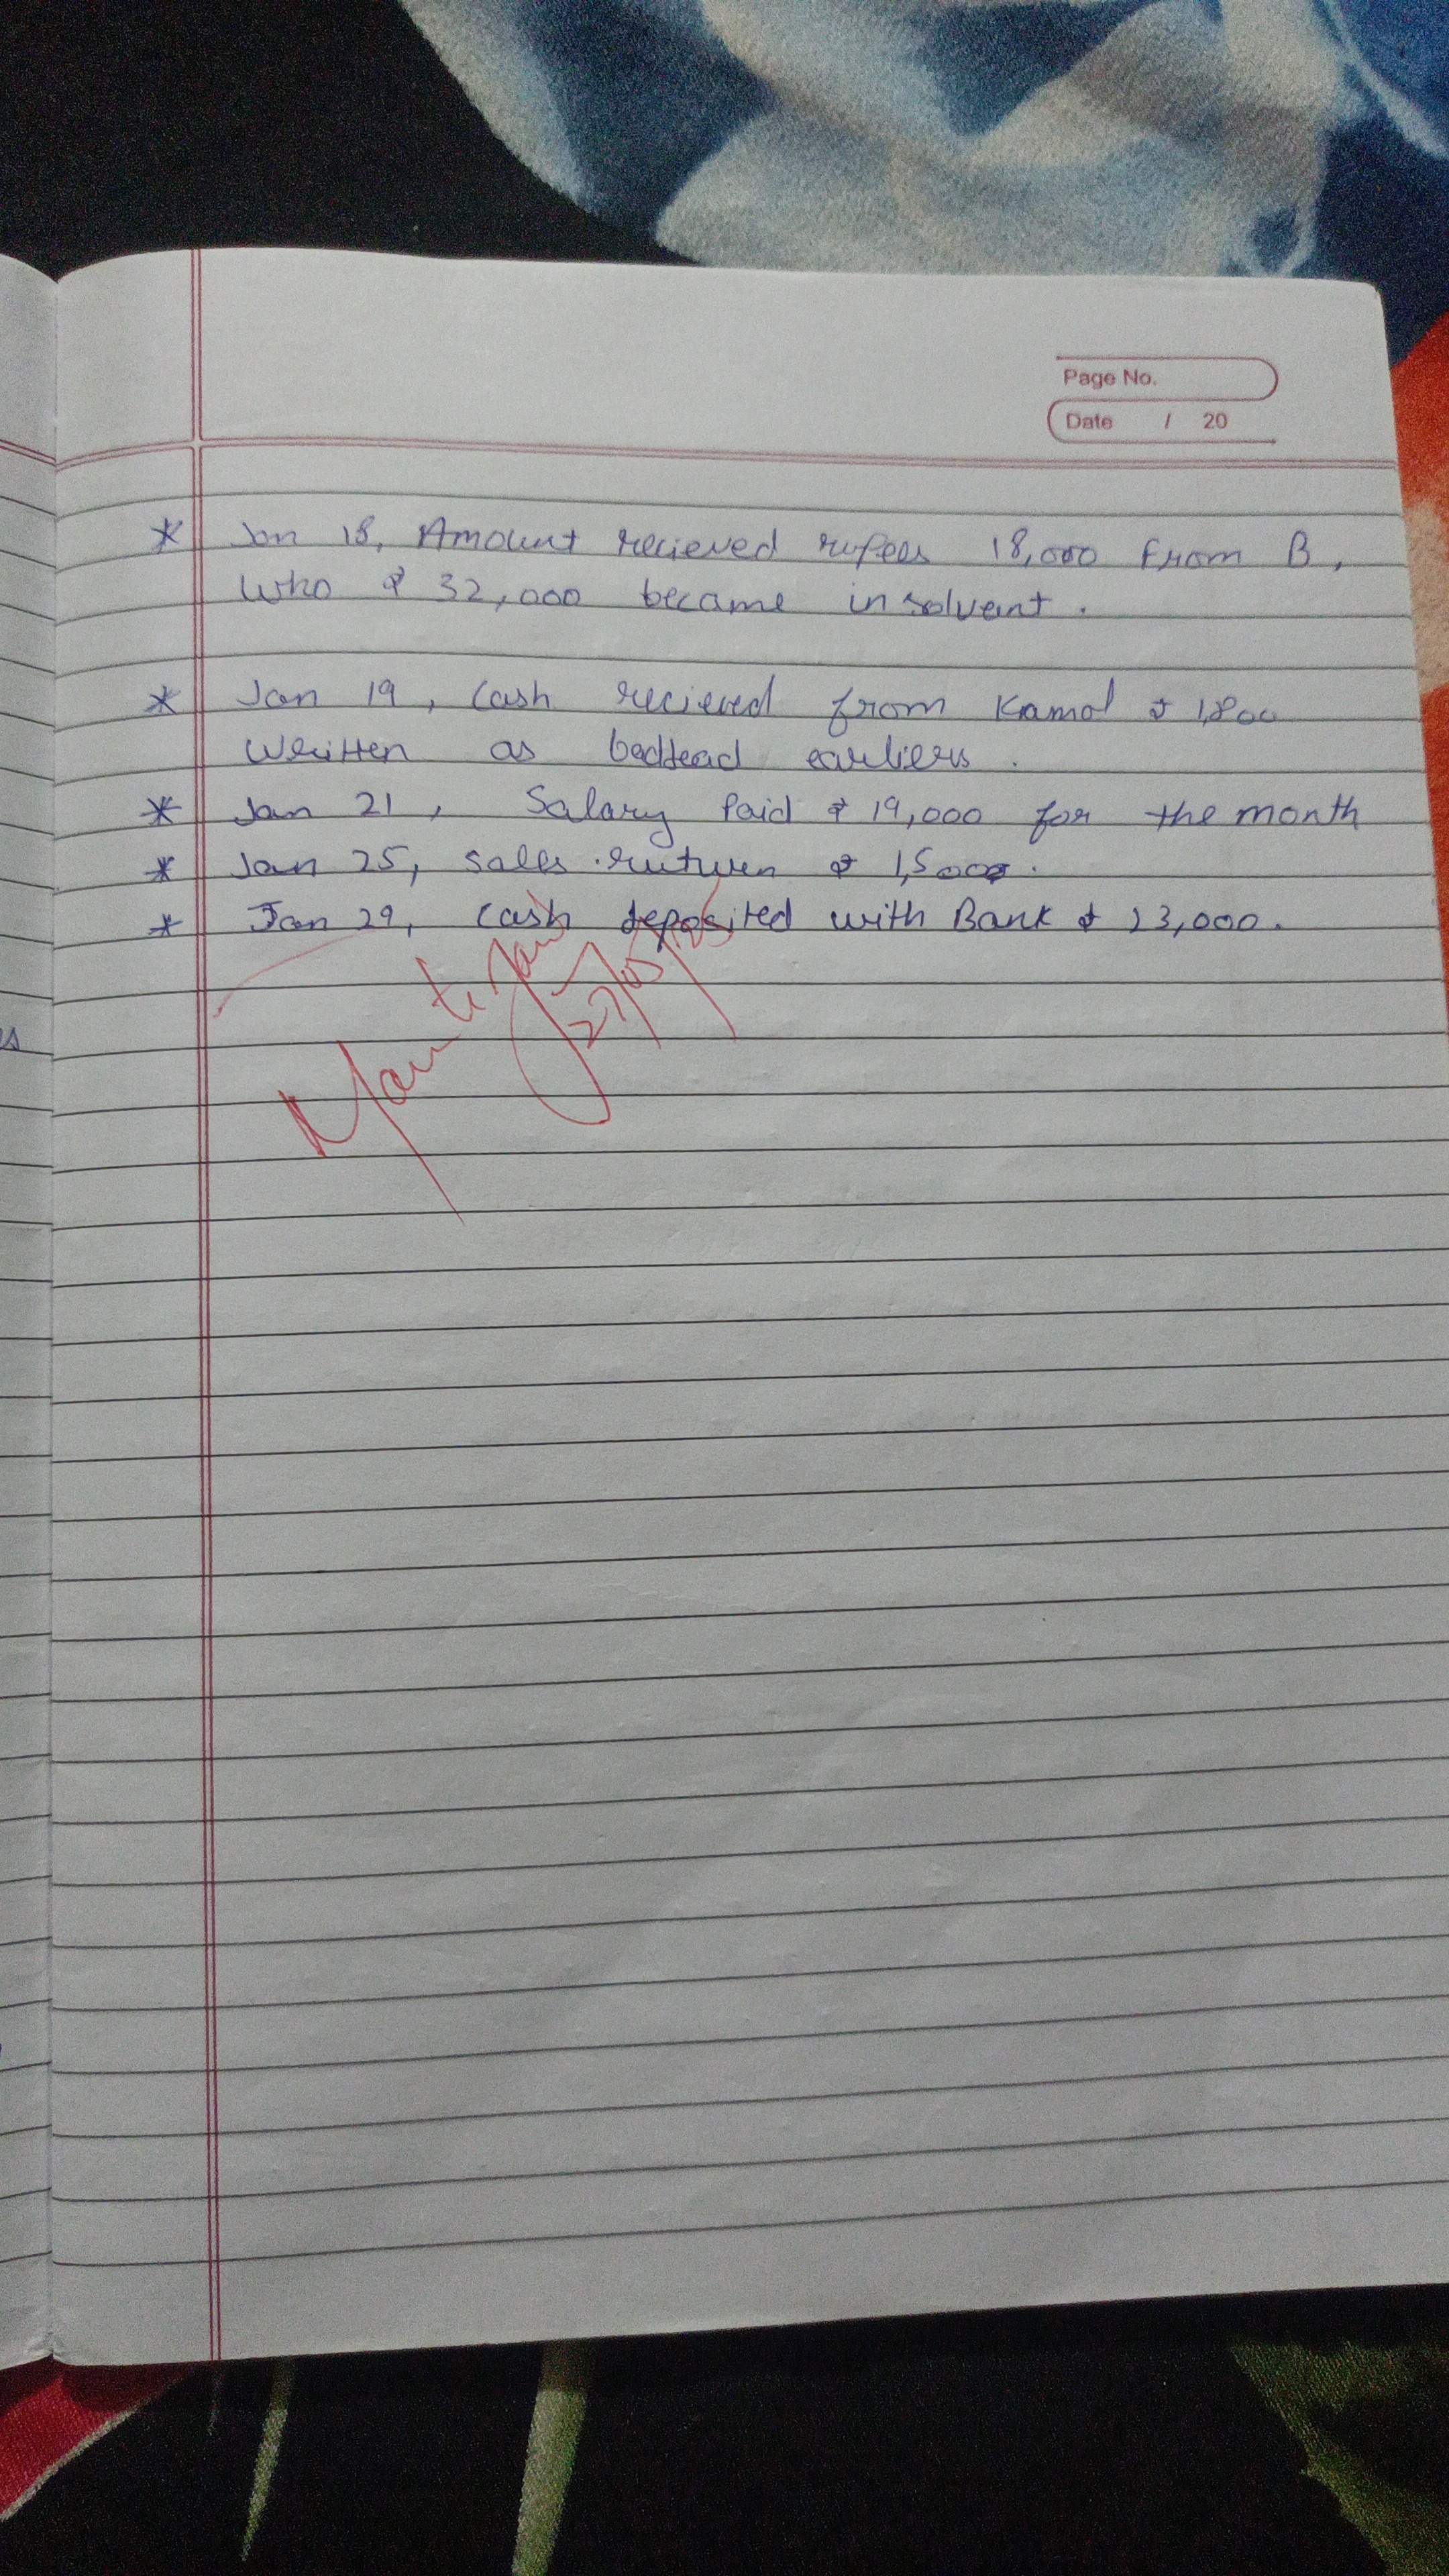 Page No.
Date / 20
* Jan 18, Amount recieved rupees 18,000 from B,
who ₹ 32,000 became insolvent.
* Jan 19, Cash recieved from Kamal ₹ 1,800
written as baddead earliers.
* Jan 21, Salary Paid ₹ 19,000 for the month
* Jan 25, Sales ruturn ₹ 1,500.
* Jan 29, Cash deposited with Bank ₹ 23,000.